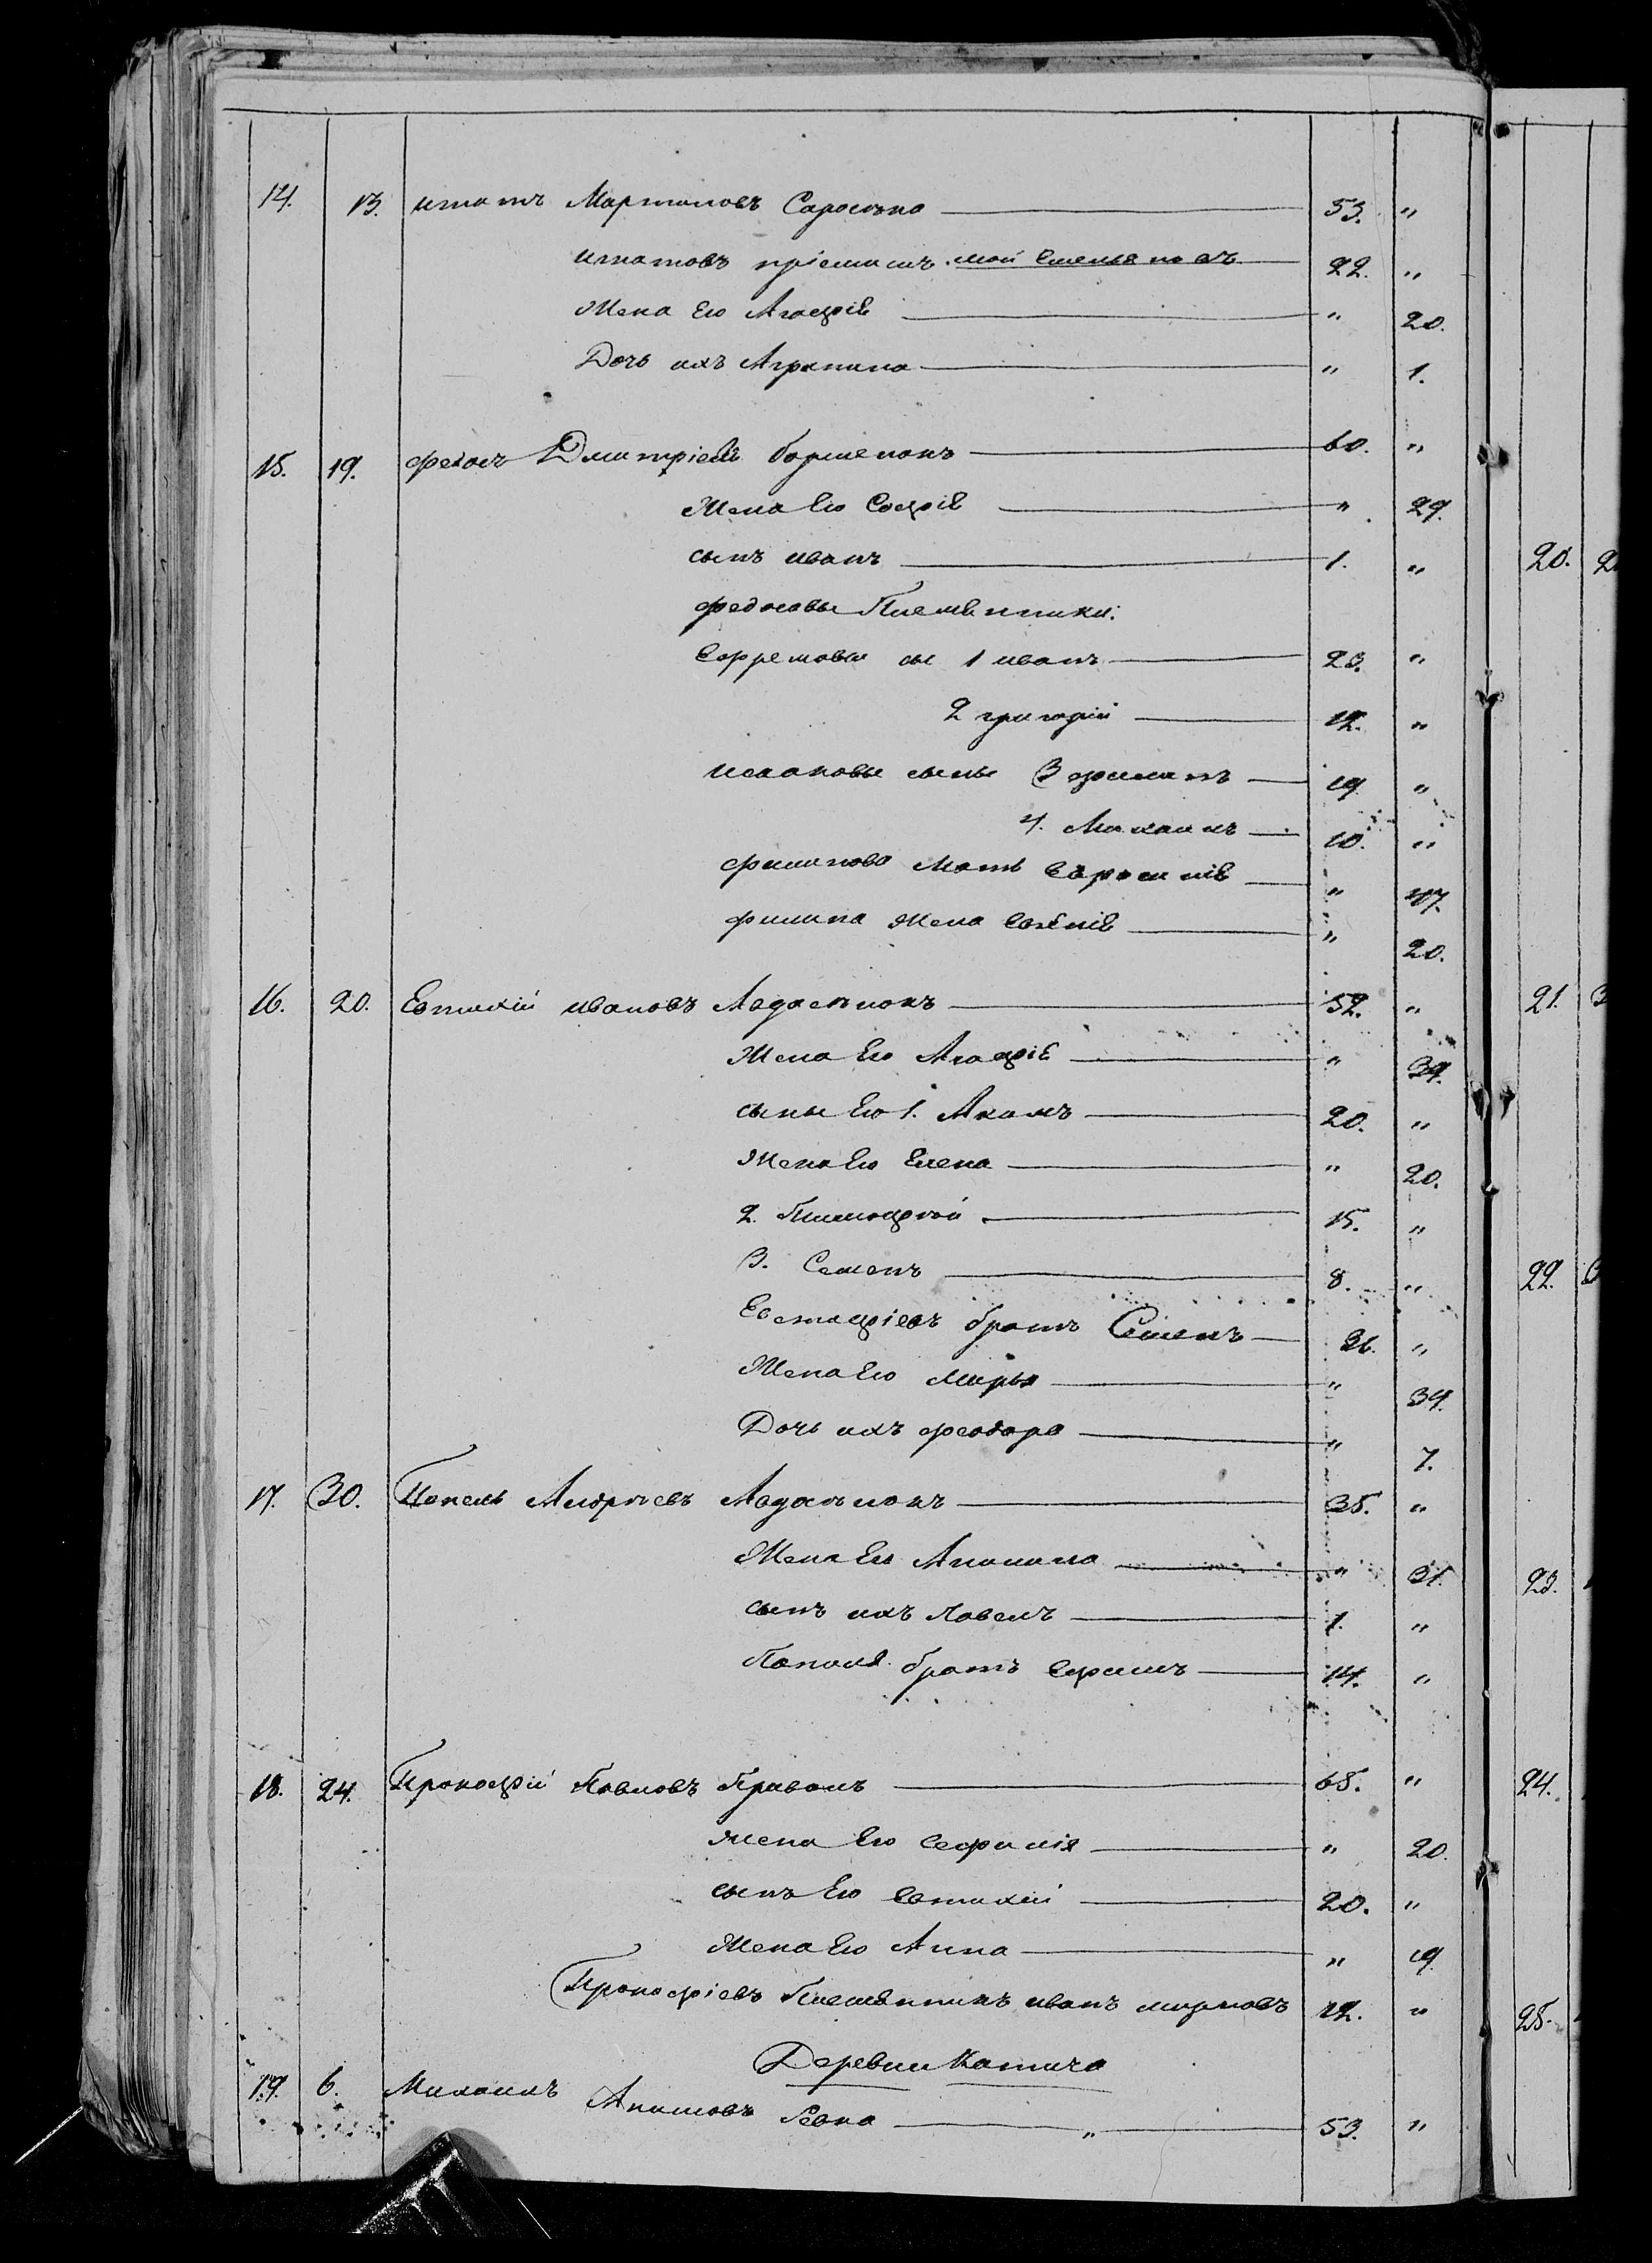 14. 13. игнатъ Мартиновъ Саросѣка 53. "
игнатовъ пріемышъ мой Емельяновъ 22. "
Жена Его Агафія " 20.
Дочь ихъ Агрипина " 1.
15. 19. федосъ Дмитріевъ 60. "
Жена Его Софія " 29.
сынъ иванъ 1. "
федосовы Племянники:
Ефремовы сы 1 иванъ 23. "
2 григорій 12. "
исаковы сыны 3 филипъ 19 "
4. Михаилъ 10. "
филипова мать Ефросинія " 47.
филипа Жена Евгенія " 20.
16. 20. Евтихій ивановъ 52. "
Жена Его Агафія " 39.
сыны Его 1. Акимъ 20. "
Жена Его Елена " 20.
2. Тимофей 15. "
3. Семенъ 8. "
Евстафіевъ братъ Семенъ 36. "
Жена Его Марья " 39.
Дочь ихъ феодора " 7.
17. 30. Потапъ Андрѣевъ 35. "
Жена Его Акилина " 31.
сынъ ихъ Павелъ 1. "
братъ Ефимъ 14. "
18. 24. Прокофій Павловъ 65. "
жена Его Евфимія " 20.
сынъ Его Евтихій 20. "
Жена Его Анна " 19
Прокофіевъ Племянникъ иванъ 12. "
Деревни Катича
19. 6. Михаилъ Акимовъ Ревка " 53. "
20.
21.
22.
23.
24.
25.